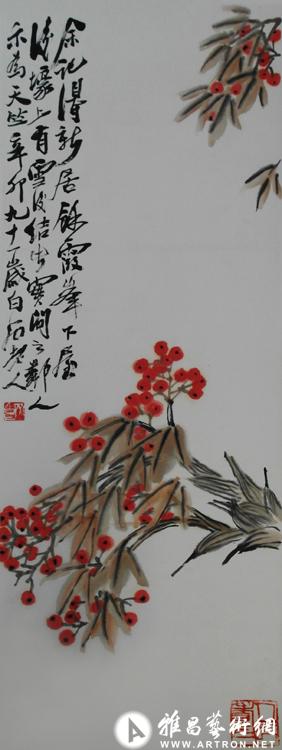 余記得新居餘霞峯下屋
後壕上有雪後結出實問之鄰人
示為天竺辛卯九十一歲白石老人
雅昌藝術網
WWW.ARTRON.NET